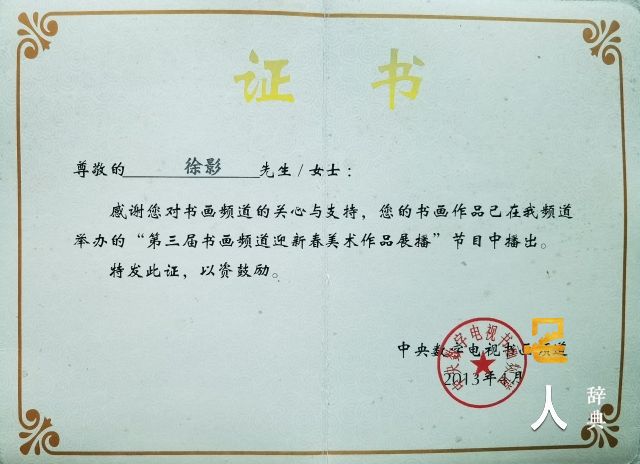 证 书
尊敬的 徐影 先生/女士：
感谢您对书画频道的关心与支持，您的书画作品已在我频道
举办的“第三届书画频道迎新春美术作品展播”节目中播出。
特发此证，以资鼓励。
中央数字电视书画频道
2013年4月
人 辞典